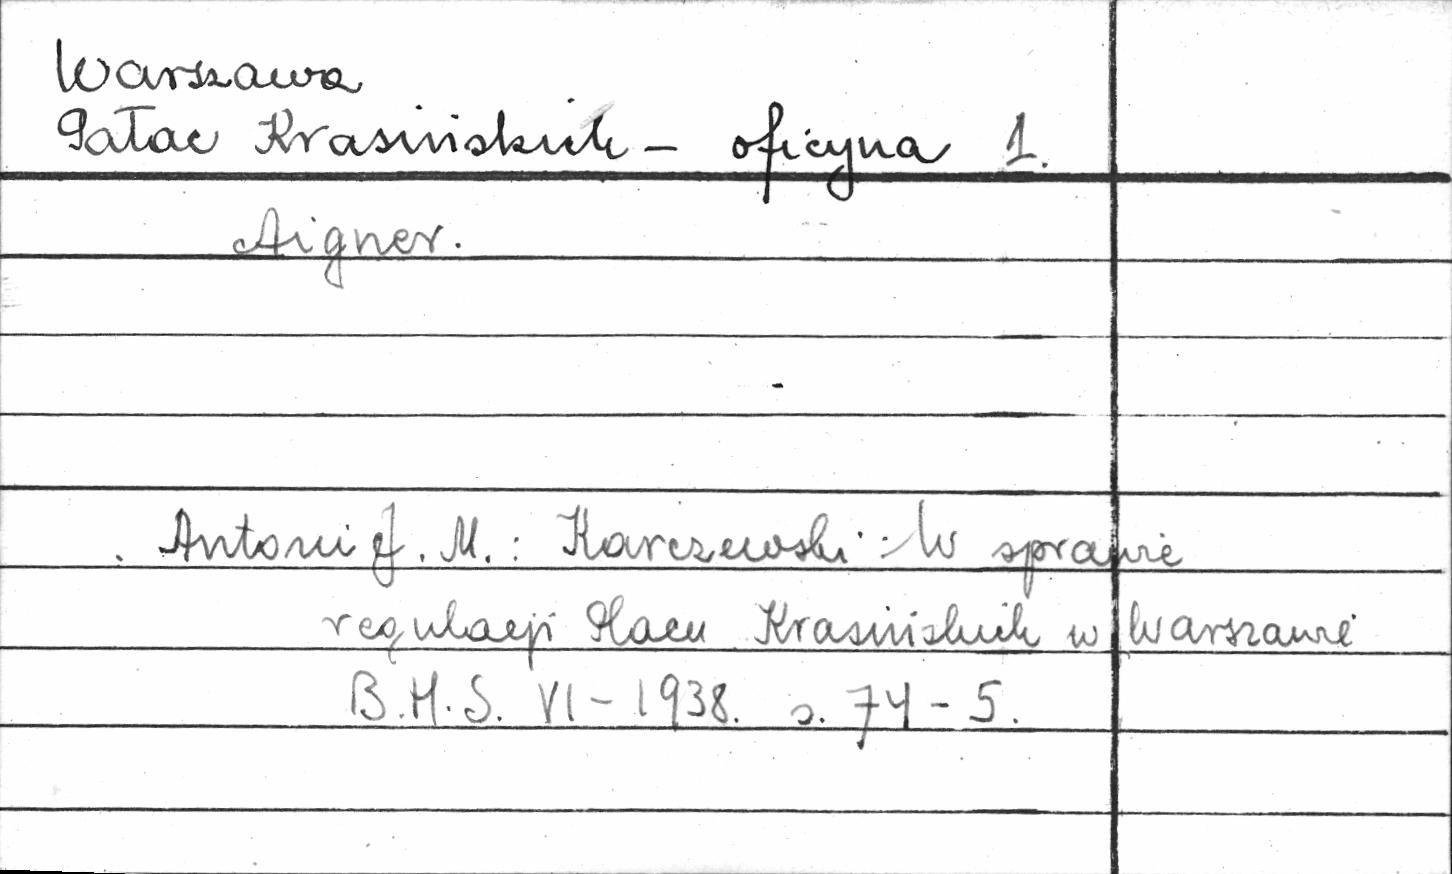 Warszawa
Pałac Krasińskich – oficyna 1.
Aigner.
. Antoni J. M. : Karczewski : W sprawie
regulacji Placu Krasińskich w Warszawie
B.H.S. VI – 1938. s. 74 – 5.